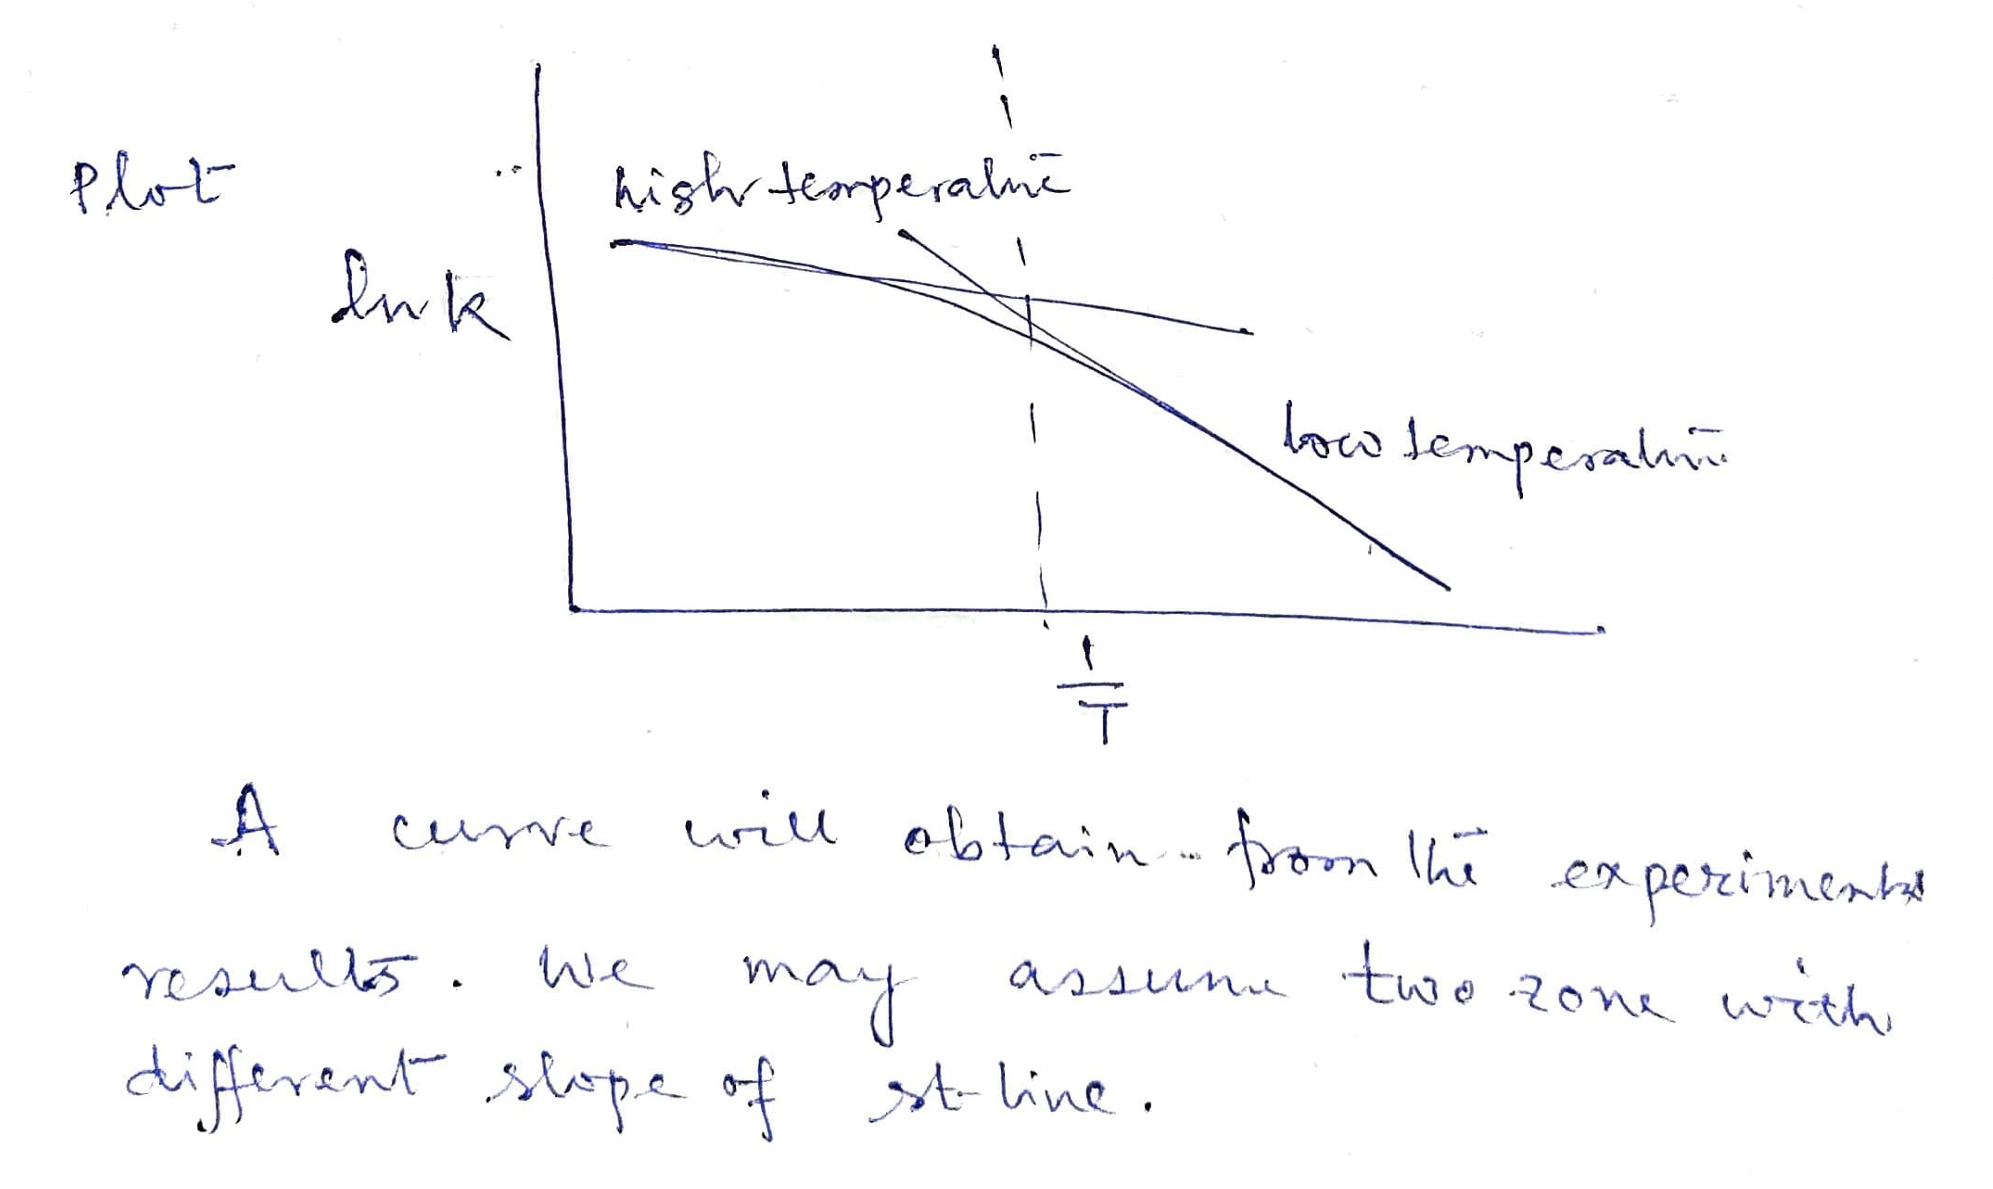 Plot
high temperature
ln k
low temperature
1
T
A curve will obtain from the experiments
results. We may assume two zone with
different slope of st-line.